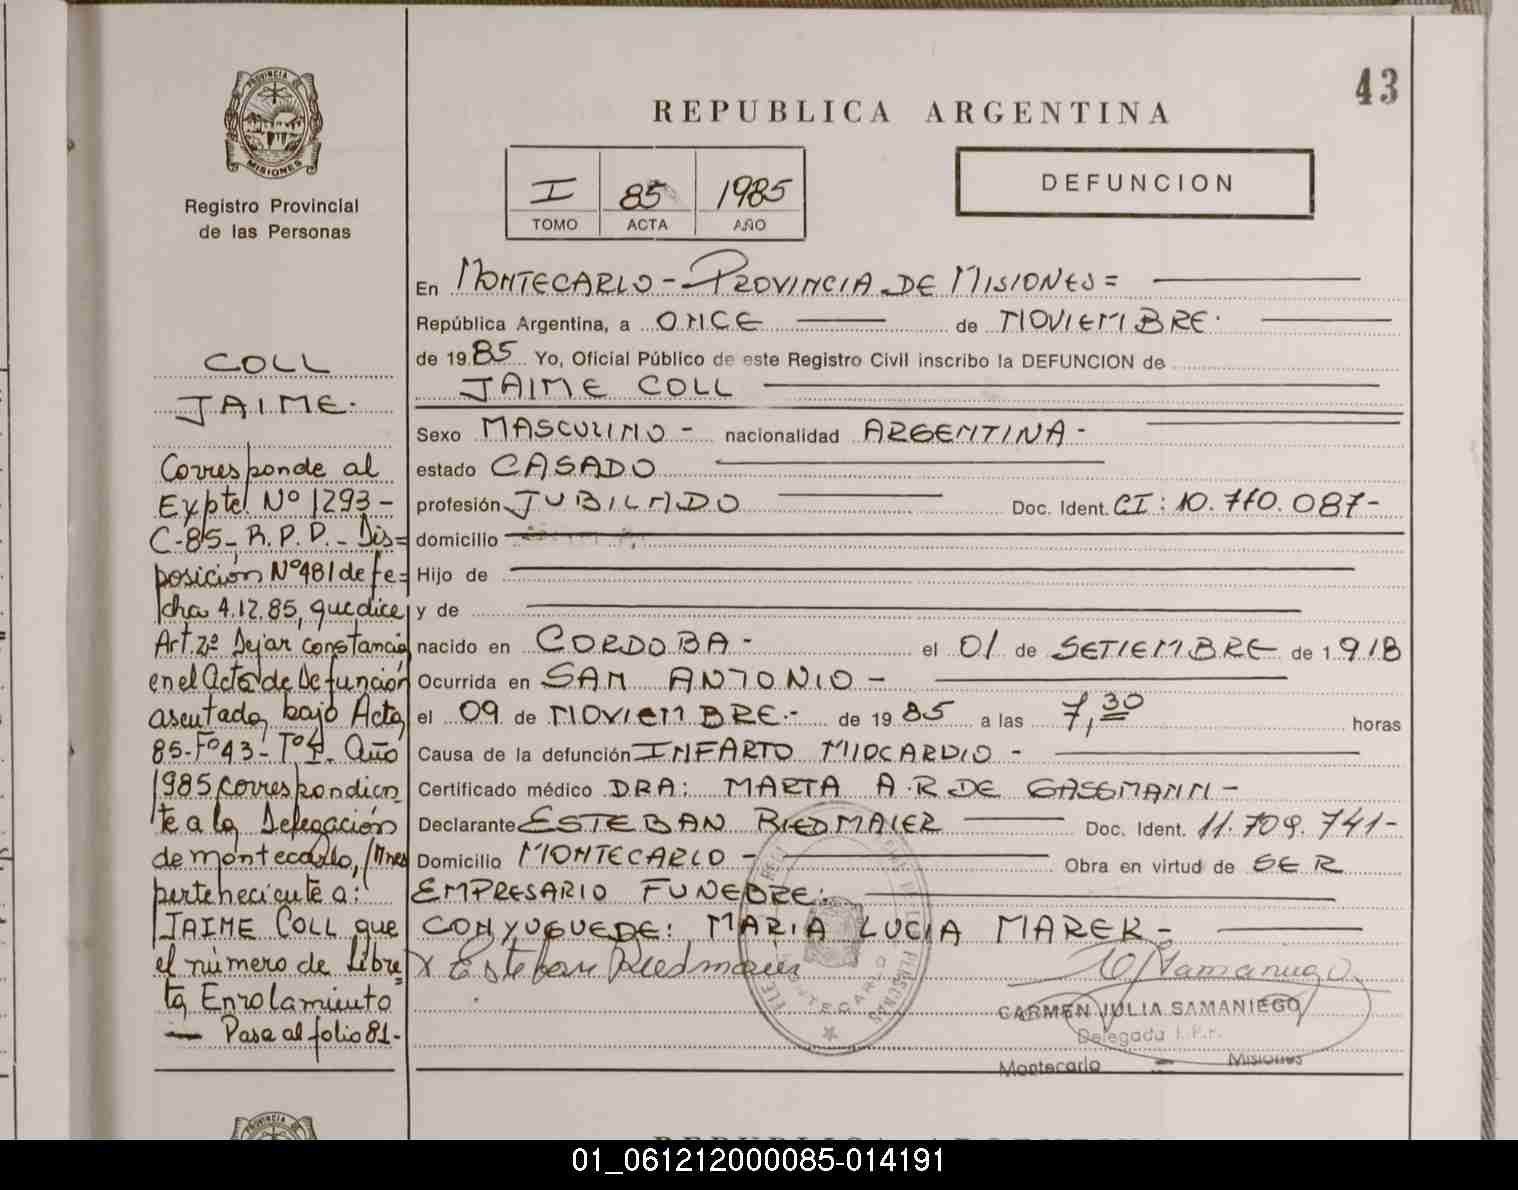 43
PROVINCIA DE
MISIONES
Registro Provincial
de las Personas
REPUBLICA ARGENTINA
I 85 1985
TOMO ACTA AÑO
DEFUNCION
COLL
JAIME.
Corresponde al
Expte. Nº 1293-
C-85-, R.P.P.- Dis=
posición Nº481 de fe=
cha 4.12.85, que dice
Art. 2º Dejar constancia
en el Acta de Defunción
asentada, bajo Acta,
85-Fº43-Tº I. Año
1985 correspondien
te a la Delegación
de montecarlo, /Mnes
perteneciente a:
JAIME COLL que
el número de Libre=
ta Enrolamiento
— Pasa al folio 81-
En MONTECARLO - PROVINCIA DE MISIONES =
República Argentina, a ONCE de NOVIEMBRE.
de 19 85 Yo, Oficial Público de este Registro Civil inscribo la DEFUNCION de
JAIME COLL
Sexo MASCULINO - nacionalidad ARGENTINA -
estado CASADO
profesión JUBILADO Doc. Ident. CI: 10.770.087-
domicilio
Hijo de
y de
nacido en CORDOBA - el 01 de SETIEMBRE de 1.918
Ocurrida en SAN ANTONIO -
el 09 de NOVIEMBRE.- de 19 85 a las 7,30 horas
Causa de la defunción INFARTO MIOCARDIO -
Certificado médico DRA: MARTA A.R DE GASSMANN -
Declarante ESTEBAN RIEDMAIER Doc. Ident. 11.709.741-
Domicilio MONTECARLO - Obra en virtud de SER
EMPRESARIO FUNEBRE:
CONYUGUE DE: MARIA LUCIA MAREK -
x Esteban Riedmaier
CARMEN JULIA SAMANIEGO
Delegada
Montecarlo - Misiones
MONTECARLO
PROVINCIA DE
REPUBLICA ARGENTINA
01_061212000085-014191